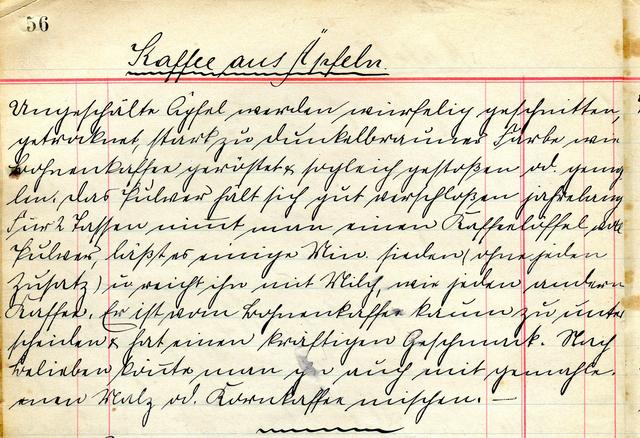 56
Kaffee aus Äpfeln.
Ungeschälte Äpfel werden würfelig geschnitten,
getroknet, stark zu dunkelbrauner Farbe wie
Bohnenkaffee geröstet & sogleich gestoßen od. gemah
len. Das Pulver hält sich gut verschloßen jahrelang
Für 2 Tassen nimt man einen Kaffeelöffel voll
Pulver, läßt es einige Min. sieden (ohne jeden
Zusatz) u. reicht ihn mit Milch, wie jeden andern
Kaffee. Er ist vom Bohnenkaffee kaum zu unter
scheiden & hat einen kräftigen Geschmack. Nach
Belieben könte man ihn auch mit gemahle-
nen Malz od. Kornkaffee mischen. —